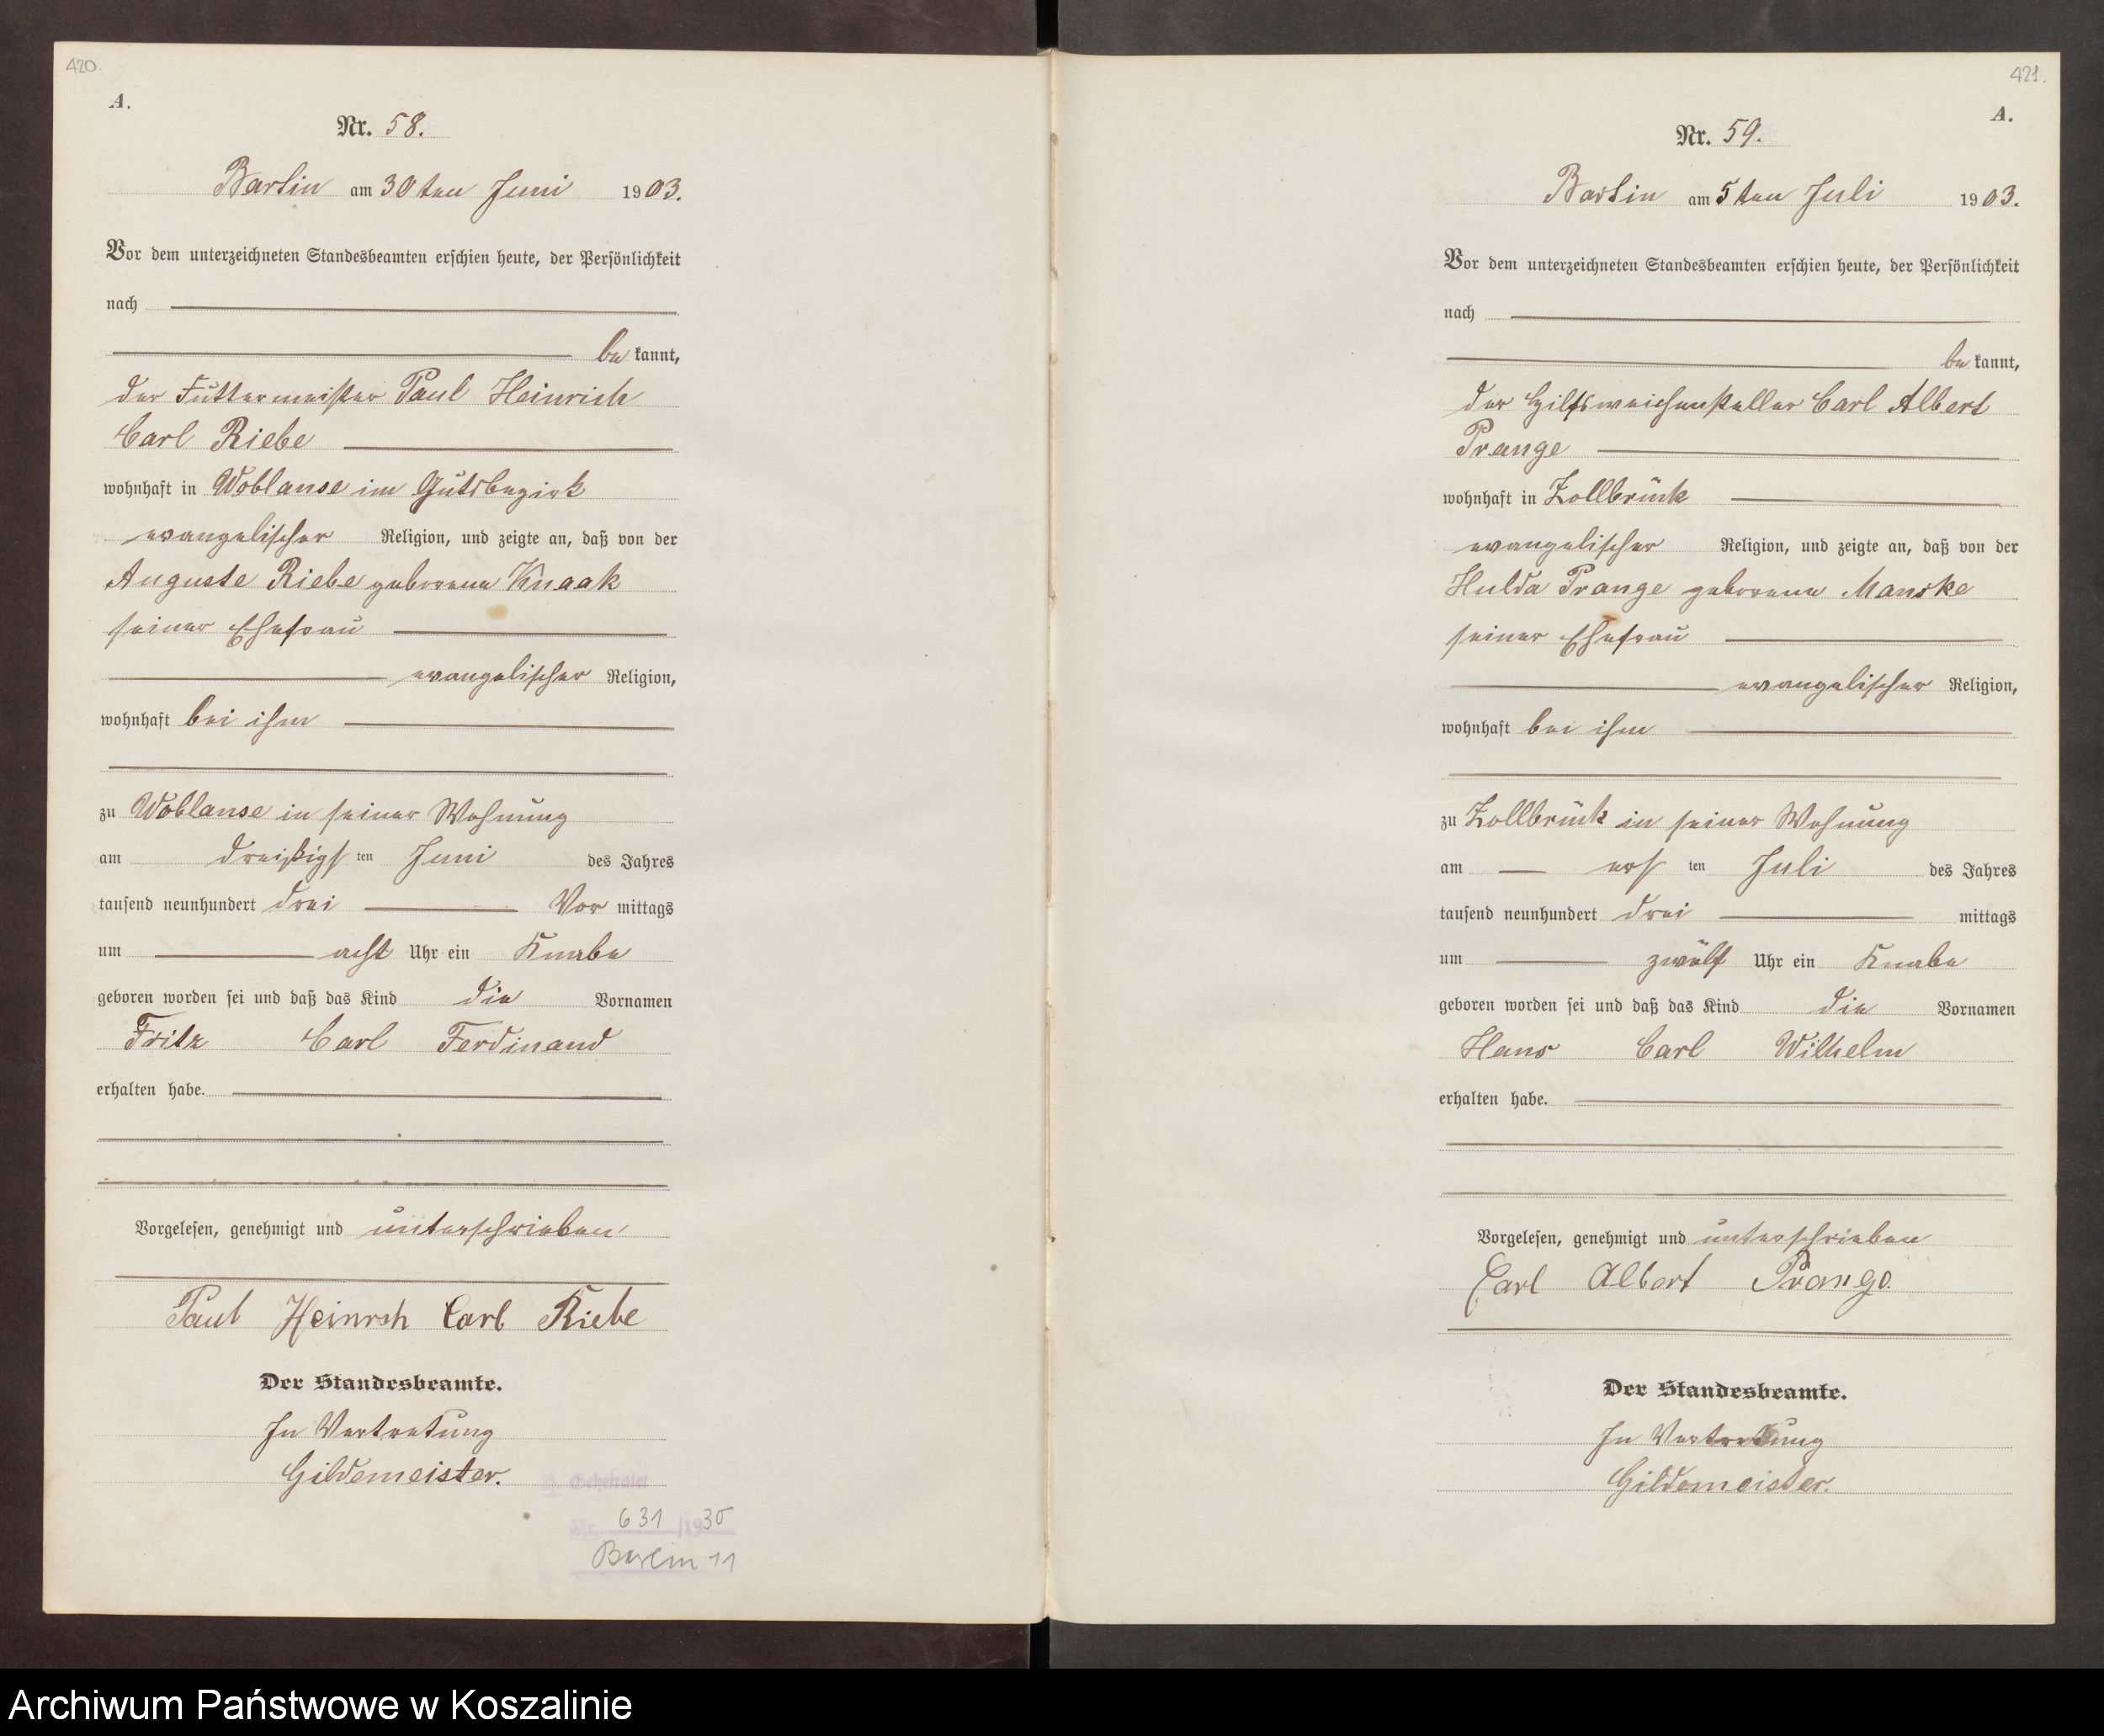 420.
A.
Nr. 58.
Bartin am 30ten Juni 1903.
Vor dem unterzeichneten Standesbeamten erschien heute, der Persönlichkeit
nach
be kannt,
der Futtermeister Paul Heinrich
Carl Riebe
wohnhaft in Woblanse im Gutsbezirk
evangelischer Religion, und zeigte an, daß von der
Auguste Riebe geborene Knaak
seiner Ehefrau
evangelischer Religion,
wohnhaft bei ihm
zu Woblanse in seiner Wohnung
am dreißigsten Juni des Jahres
tausend neunhundert drei Vor mittags
um acht Uhr ein Knabe
geboren worden sei und daß das Kind die Vornamen
Fritz Carl Ferdinand
erhalten habe.
Vorgelesen, genehmigt und unterschrieben
Paul Heinrch Carl Riebe
Der Standesbeamte.
In Vertretung
Gildemeister.
Nr. 631 /1935
Berlin 11
421.
A.
Nr. 59.
Bartin am 5ten Juli 1903.
Vor dem unterzeichneten Standesbeamten erschien heute, der Persönlichkeit
nach
be kannt,
der Hilfsweichensteller Carl Albert
Prange
wohnhaft in Zollbrück
evangelischer Religion, und zeigte an, daß von der
Hulda Prange geborene Manske
seiner Ehefrau
evangelischer Religion,
wohnhaft bei ihm
zu Zollbrück in seiner Wohnung
am ersten Juli des Jahres
tausend neunhundert drei mittags
um zwölf Uhr ein Knabe
geboren worden sei und daß das Kind die Vornamen
Hans Carl Wilhelm
erhalten habe.
Vorgelesen, genehmigt und unterschrieben
Carl Albert Prange
Der Standesbeamte.
In Vertretung
Gildemeister.
Archiwum Państwowe w Koszalinie